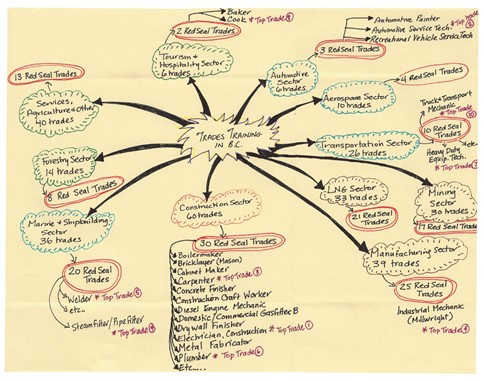 TRADES TRAINING
IN B.C.
Tourism &
Hospitality Sector
6 trades
2 Red Seal Trades
Baker
Cook * Top Trade
Automotive
Sector
6 trades
3 Red Seal Trades
Automotive Painter
Automotive Service Tech. * Top Trade
Recreational Vehicle Service Tech
Aerospace Sector
10 trades
4 Red Seal Trades
Transportation Sector
26 trades
10 Red Seal
Trades
Truck & Transport
Mechanic
* Top Trade
10
Heavy Duty
Equip. Tech.
* Top Trade
etc.
Mining
Sector
30 trades
17 Red Seal Trades
LNG Sector
33 trades
21 Red Seal
Trades
Manufacturing Sector
39 trades
25 Red Seal
Trades
Industrial Mechanic
(Millwright)
* Top Trade
Construction Sector
60 trades
30 Red Seal Trades
Boilermaker
Bricklayer (Mason)
Cabinet Maker
Carpenter * Top Trade
Concrete Finisher
Construction Craft Worker
Diesel Engine Mechanic
Domestic/Commercial Gasfitter B
Drywall Finisher
Electrician, Construction * Top Trade 1
Metal Fabricator
Plumber * Top Trade 6
Etc.....
Marine & Shipbuilding
Sector
36 trades
20 Red Seal
Trades
Welder * Top Trade
etc..
Steamfitter/Pipefitter
* Top Trade
Forestry Sector
14 trades
8 Red Seal Trades
Services,
Agriculture & Other
40 trades
13 Red Seal Trades